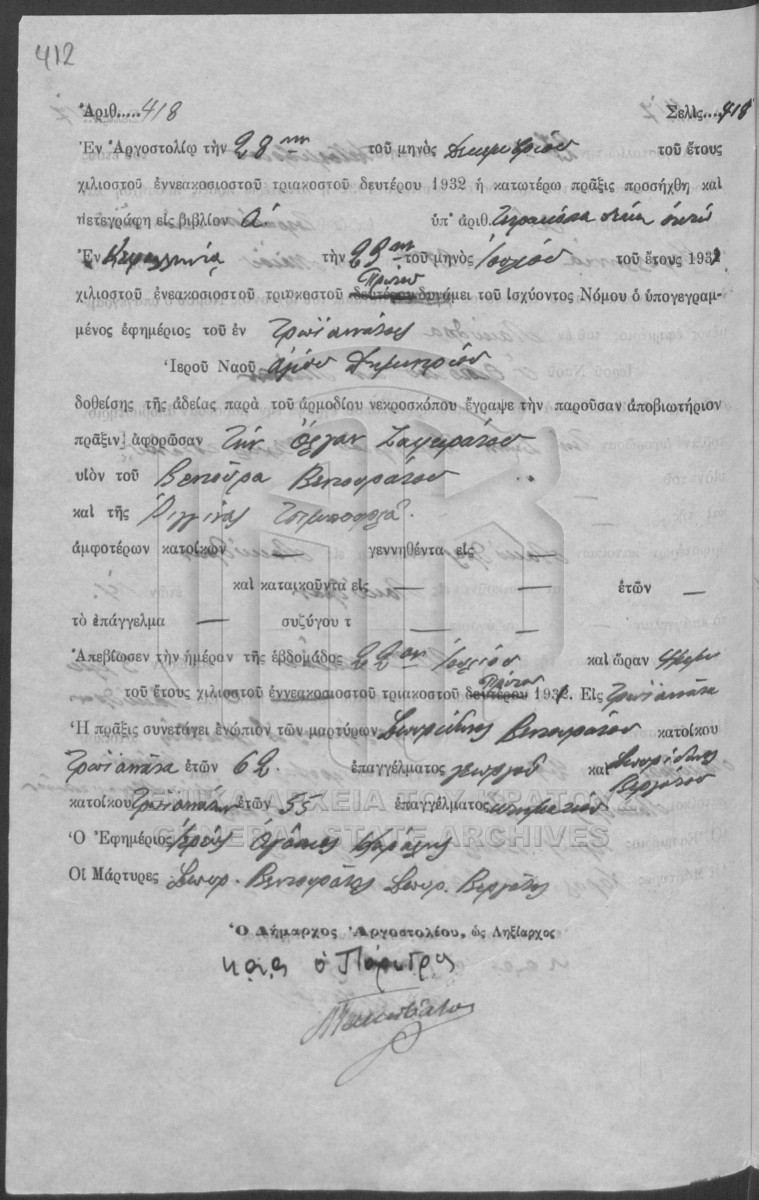 412
Ἀριθ.....418 Σελὶς....418
Ἐν Ἀργοστολίῳ τὴν 28ην τοῦ μηνὸς Δεκεμβρίου τοῦ ἔτους
χιλιοστοῦ ἐννεακοσιοστοῦ τριακοστοῦ δευτέρου 1932 ἡ κατωτέρω πρᾶξις προσήχθη καὶ
μετεγράφη εἰς βιβλίον Α΄. ὑπ' ἀριθ. τετρακόσια δέκα ὀκτώ
Ἐν Κεφαλληνίᾳ τὴν 23ην τοῦ μηνὸς Ἰουλίου τοῦ ἔτους 1931
πρώτου
χιλιοστοῦ ἐνεακοσιοστοῦ τριακοστοῦ δευτέρου δυνάμει τοῦ ἰσχύοντος Νόμου ὁ ὑπογεγραμ-
μένος ἐφημέριος τοῦ ἐν Τρωϊαννάτοις
Ἱεροῦ Ναοῦ Ἁγίου Δημητρίου
δοθείσης τῆς ἀδείας παρὰ τοῦ ἁρμοδίου νεκροσκόπου ἔγραψε τὴν παροῦσαν ἀποβιωτήριον
πρᾶξιν ἀφορῶσαν τὴν Ὄλγαν
υἱὸν τοῦ Βεντούρα Βεντουράτου
καὶ τῆς Ῥεγγίνας
ἀμφοτέρων κατοίκων — γεννηθέντα εἰς —
καὶ κατοικοῦντα εἰς — — ἐτῶν —
τὸ ἐπάγγελμα — συζύγου τ — —
Ἀπεβίωσεν τὴν ἡμέραν τῆς ἑβδομάδος 22αν Ἰουλίου καὶ ὥραν
πρώτου
τοῦ ἔτους χιλιοστοῦ ἐννεακοσιοστοῦ τριακοστοῦ δευτέρου 1931. Εἰς Τρωϊαννάτα
Ἡ πρᾶξις συνετάγει ἐνώπιον τῶν μαρτύρων Σπυρίδωνος Βεντουράτου κατοίκου
Τρωϊαννάτα ἐτῶν 62. ἐπαγγέλματος γεωργοῦ καὶ Σπυρίδωνος
Βεργώτου
κατοίκου Τρωϊαννάτα ἐτῶν 55 ἐπαγγέλματος κτηματίου
Ὁ Ἐφημέριος Ἱερεὺς
Οἱ Μάρτυρες Σπυρ. Βεντουράτος Σπυρ. Βεργώτης
Ὁ Δήμαρχος Ἀργοστολίου, ὡς Ληξίαρχος
κ. α. α. ὁ Πάρεδρος
ΓΕΝΙΚΑ ΑΡΧΕΙΑ ΤΟΥ ΚΡΑΤΟΥΣ
GENERAL STATE ARCHIVES